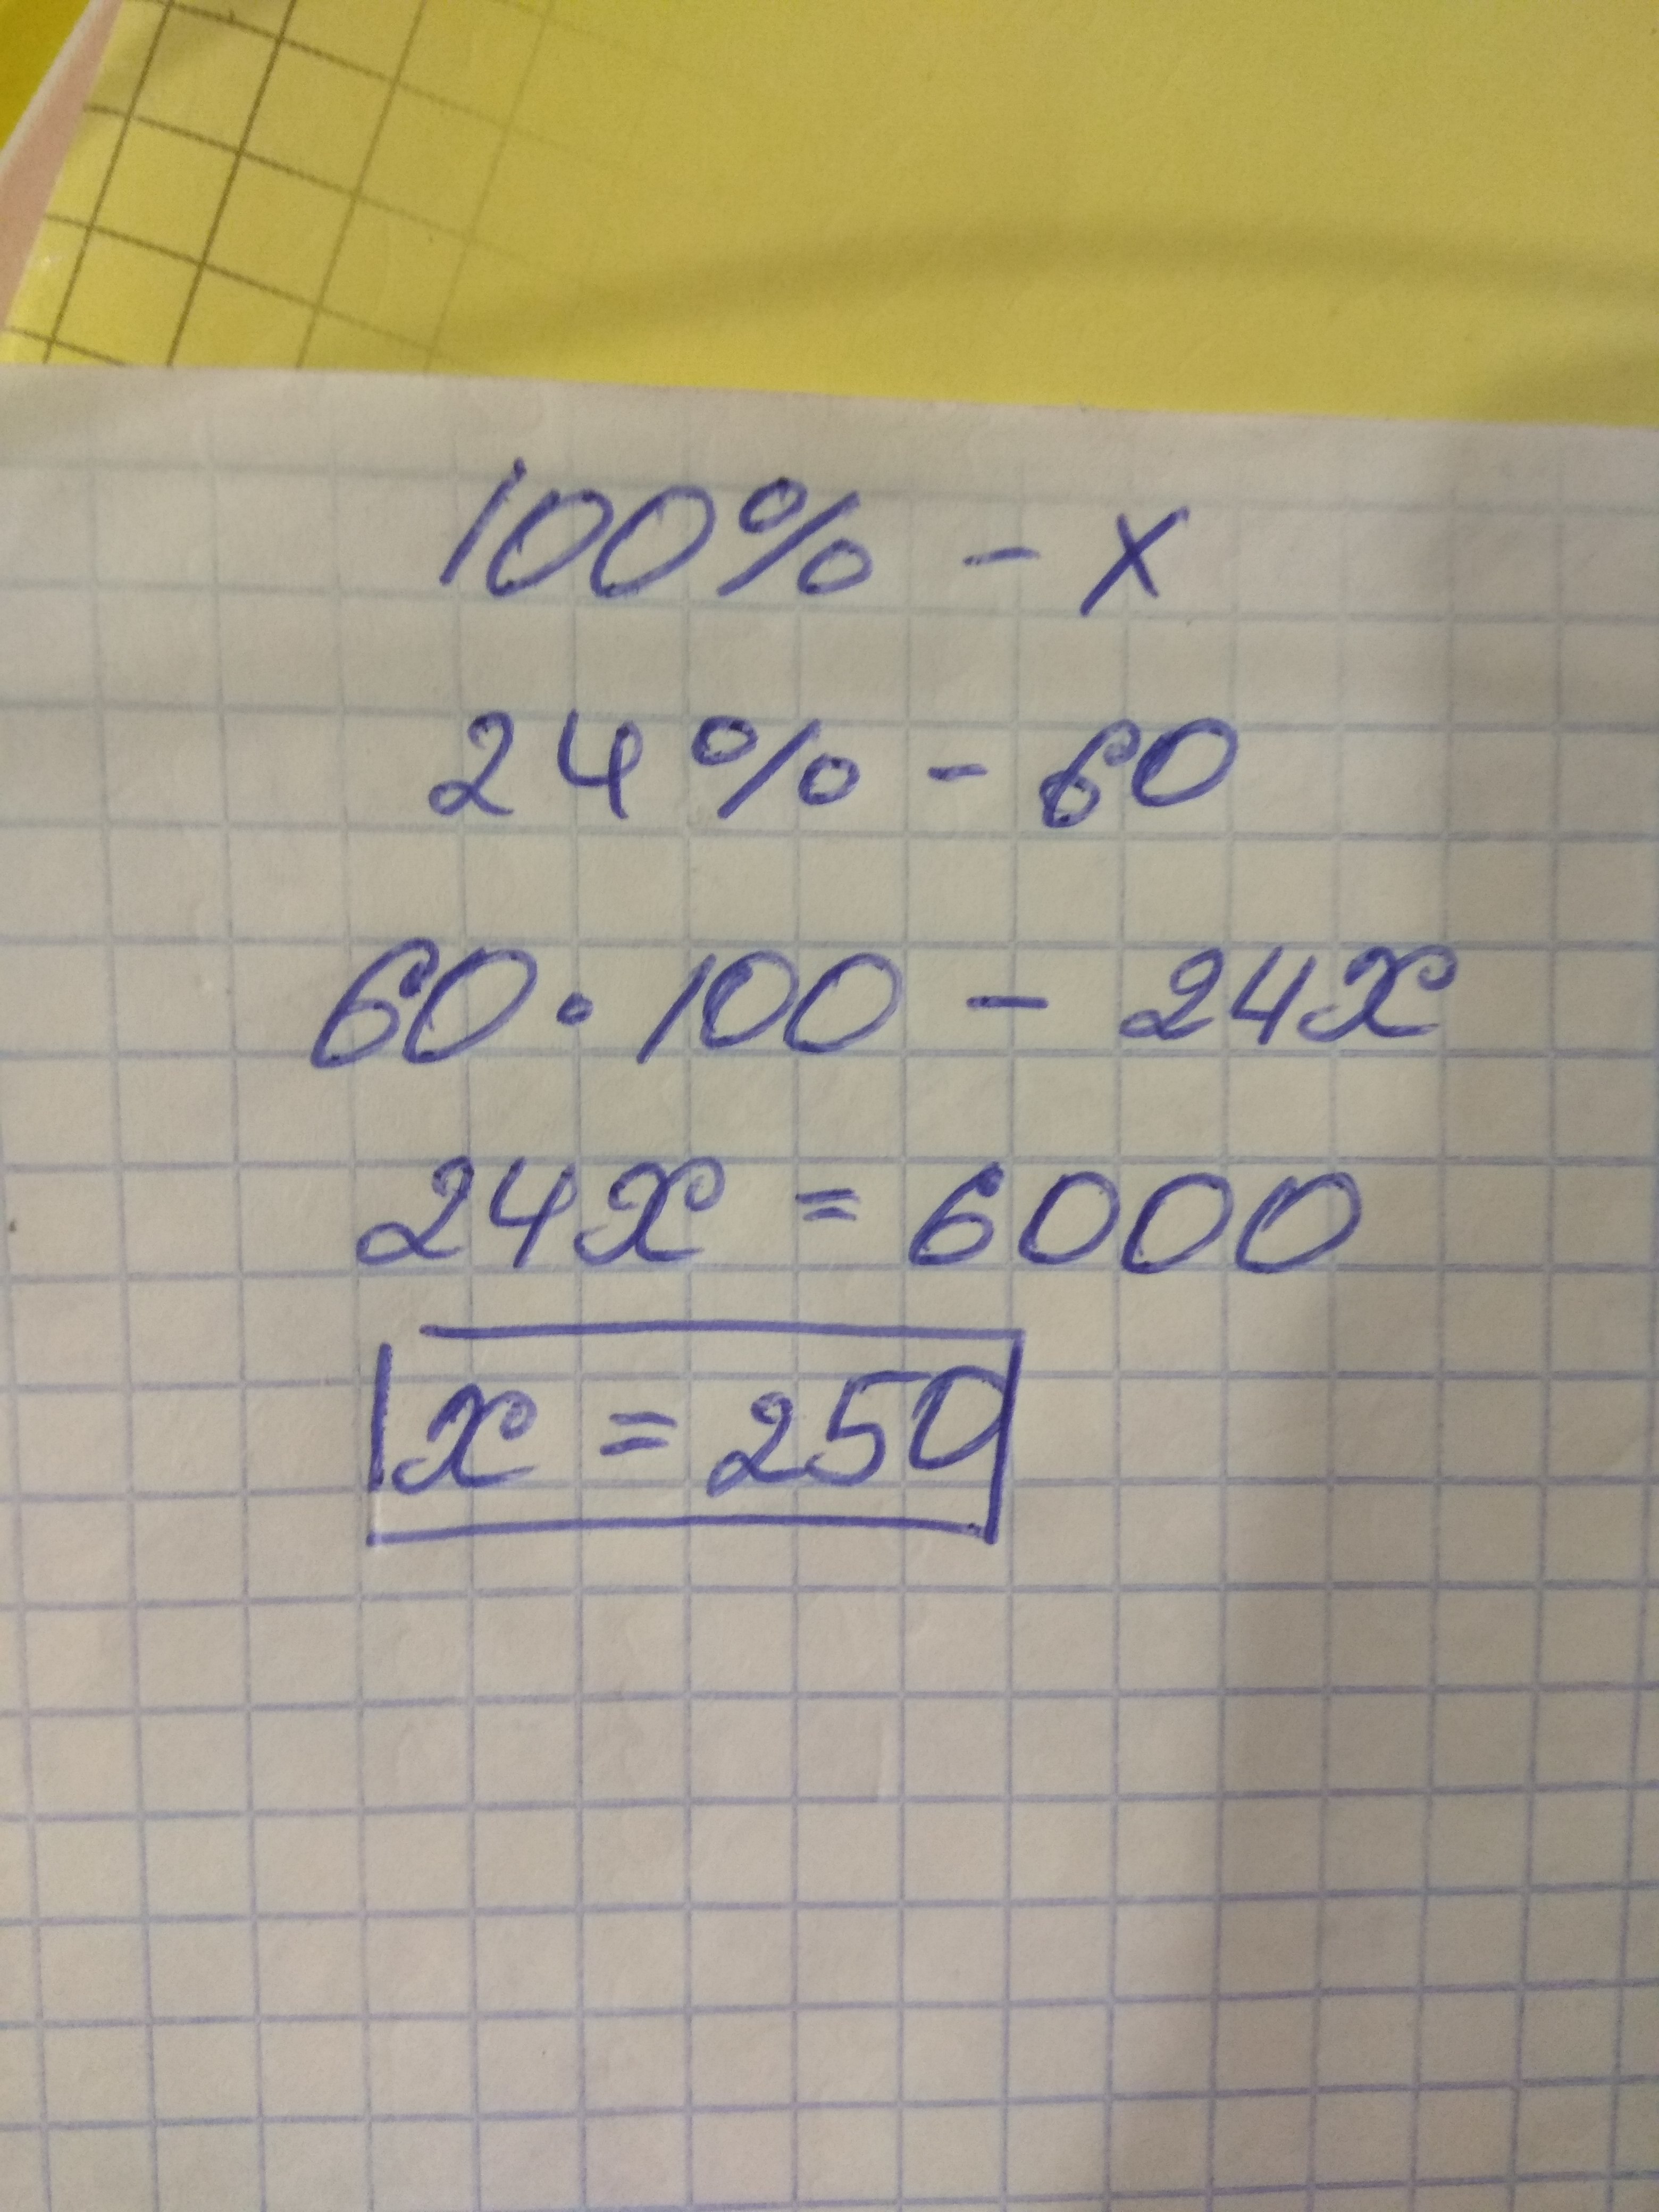 100% - x
24% - 60
60 · 100 - 24x
24x = 6000
x = 250